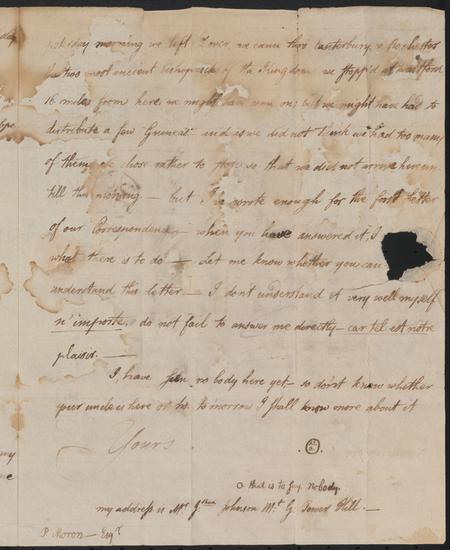 yesterday morning we left Dover, we came thro' Canterbury & Rochester
the two most ancient bishopricks of the Kingdom we stopp'd at Dartford
16 miles from here we might have won on; but we might have had to
distribute a few Guineas and as we did not think we had too many
of them, we chose rather to stop so that we did not arrive here
till this morning. — but I've wrote enough for the first letter
of our Correspondence, — when you have answered it, I
what there is to do — Let me know whether you can
understand this letter — I don't understand it very well myself
n'importe, do not fail to answer me directly — car tel est notre
plaisir. —
I have seen no body here yet — so don't know whether
your uncle is here or no. to morrow I shall know more about it
Yours
O that is to say, Nobody.
my address is Mr. Johnson Mt. G Tower Hill. —
P. Moron — Esqr